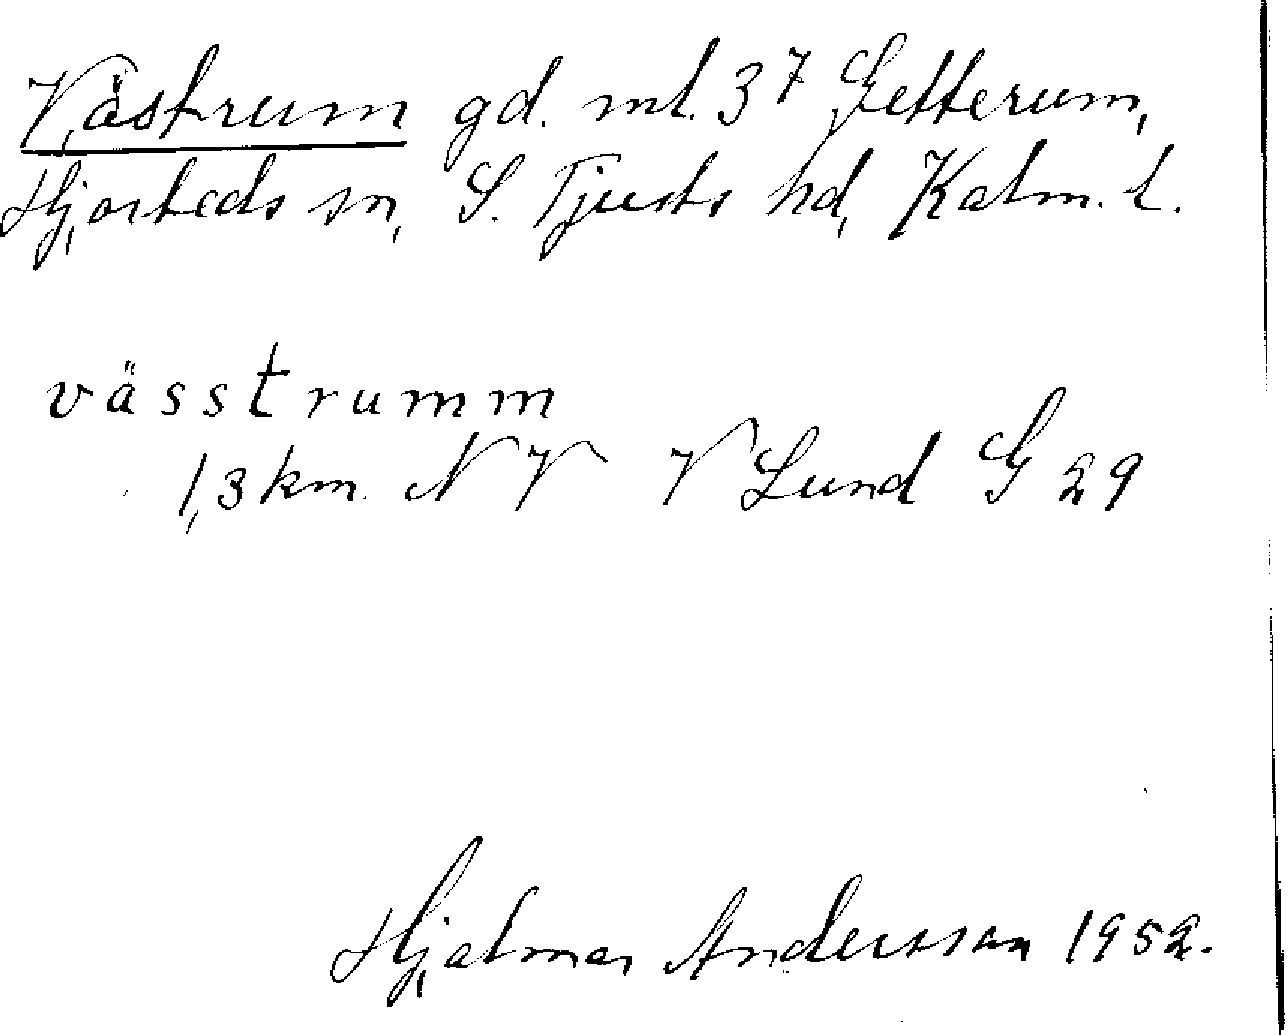 Västrum gd. ml. 3⁷ Getterum,
Hjorteds sn, S. Tjusts hd, Kalm. l.
vässtrumm
1,3 km. NV V Lund G 29
Hjalmar Andersson 1952.